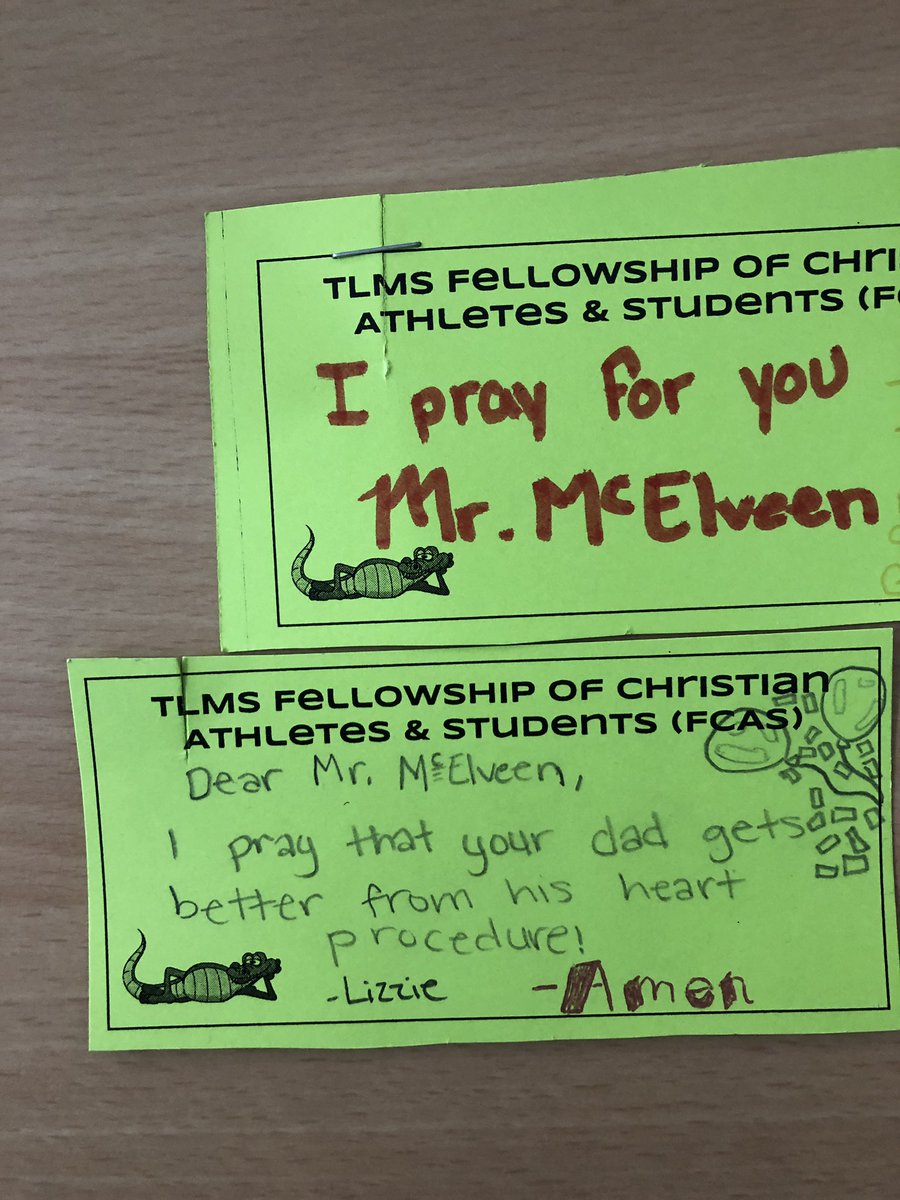 TLMS Fellowship of Chri
Athletes & Students (F
I pray for you
Mr. McElveen
TLMS Fellowship of Christian
Athletes & Students (FCAS)
Dear Mr. McElveen,
I pray that your dad gets
better from his heart
procedure!
-Lizzie -Amen